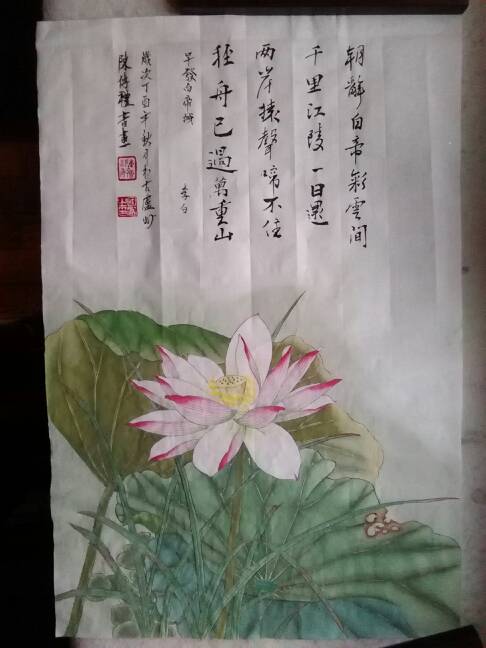 朝辭白帝彩雲間
千里江陵一日還
兩岸猿聲啼不住
輕舟已過萬重山
早發白帝城
李白
歲次丁酉年秋月於古廬州
陳傳禮書畫